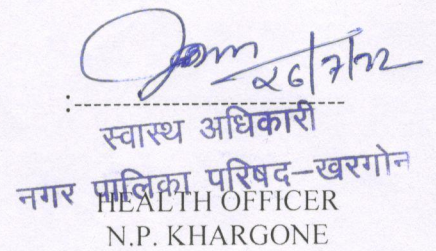 26/7/22
स्वास्थ अधिकारी
नगर पालिका परिषद-खरगोन
HEALTH OFFICER
N.P. KHARGONE